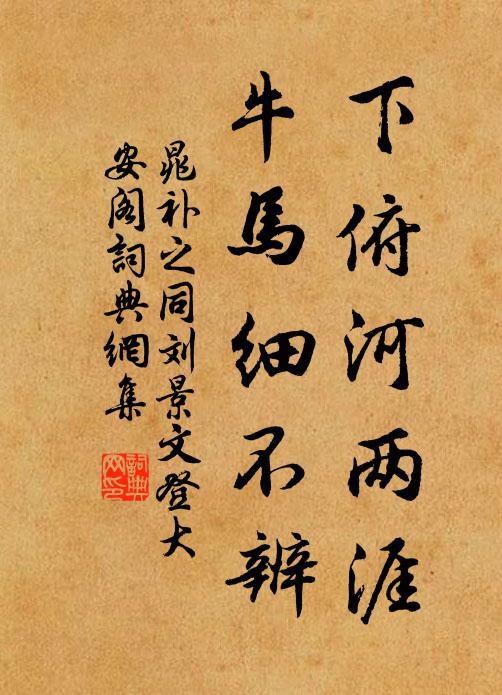 下俯河两涯
牛馬细不辨
晁补之同刘景文登大
安阁詞典網集
詞典
网印